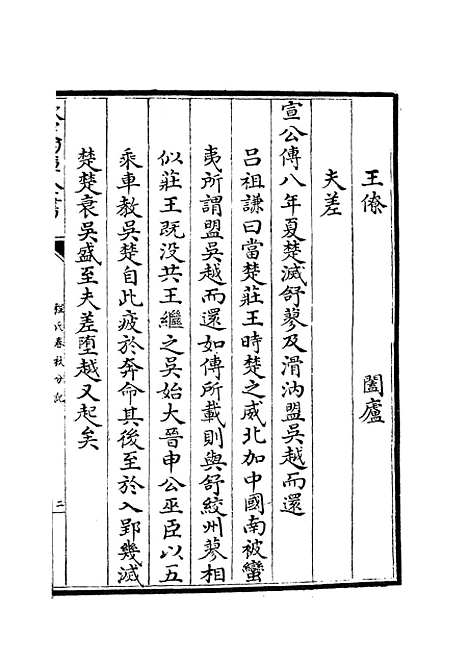 王僚 闔廬
夫差
宣公傳八年夏楚滅舒蓼及滑汭盟吳越而還
呂祖謙曰當楚莊王時楚之威北加中國南被蠻
夷所謂盟吳越而還如傳所載則與舒絞州蓼相
似莊王既没共王繼之吳始大晉申公巫臣以五
乘車教吳楚自此疲於奔命其後至於入郢幾滅
楚楚衰吳盛至夫差墮越又起矣
程氏春秋分記 二